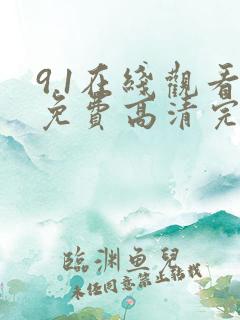 9.1在綫觀看
免費高清完
臨淵魚兒
未经同意禁止转载